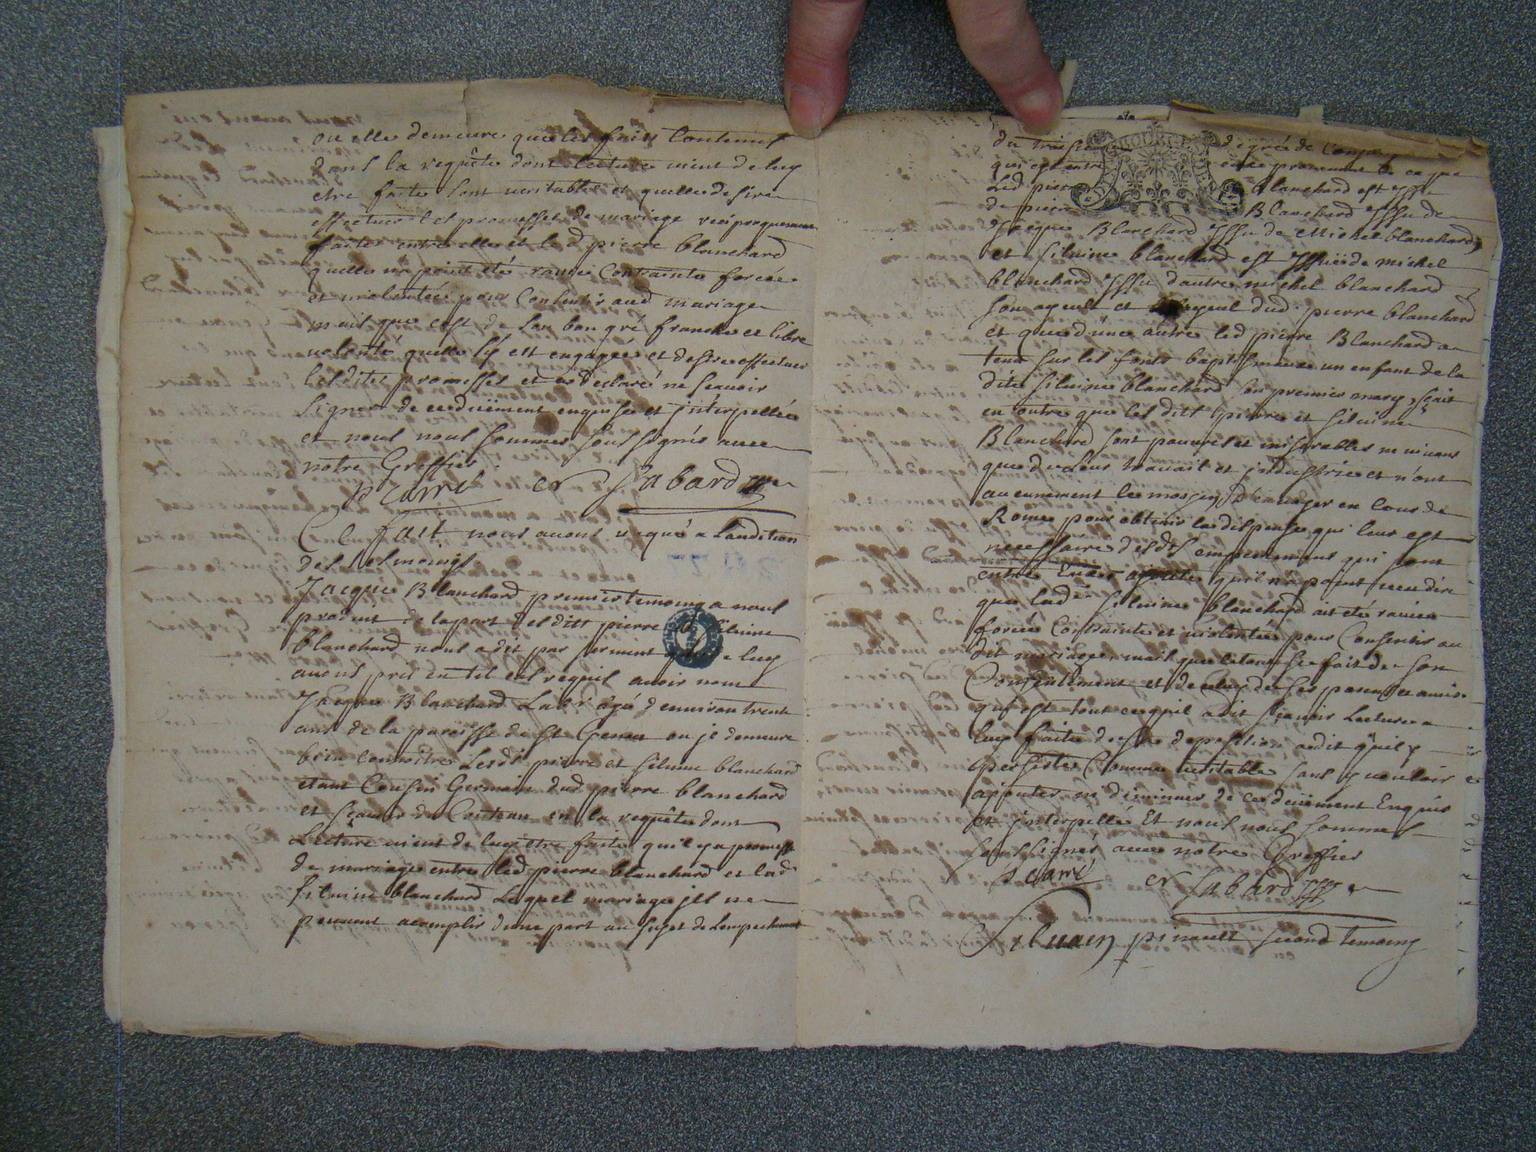 ou elle demeure que les faits Contenus
dans la requête dont lecture vient de luy
etre faite sont veritables et quelle desire
effectuer les promesses de mariage reciproquement
faites entre elle et led pierre blanchard
quelle na point été ravie Contrainte forcée
et violentée pour Consentir aud mariage
mais que cest de son bon gré franche et libre
volonté quelle sy est engagée et desire effectuer
lesdites promesses et a declaré ne scavoir
signer de ce duëment enquise et jnterpellée
et nous nous sommes sous signés avec
notre Greffier
Sabard
Ce fait nous avons vaqué a Laudition
des tesmoings
Jacque Blanchard premier temoing a nous
produit de la part desdits pierre et silvine
blanchard nous a dit par serment de luy
avons pris en tel cas requis avoir nom
Jacque Blanchard agé denviron trent
ans de la paroisse de St Genou ou je demeure
bien connoitre lesdit pierre et silvine blanchard
etant Cousin Germain dud pierre blanchard
et scavoir du Contenu en la requête dont
Lecture vient de luy etre faite qu'il y a promesse
de mariage entre led pierre blanchard et lad
silvine blanchard Lequel mariage jls ne
peuvent acomplir dune part au sujet de Lempechement
du troisie degrée de Consan
qui est entre
Led pierre Blanchard est issu
de pierre Blanchard issu de
Jacque Blanchard issu de Michel blanchard
et silvine blanchard est issuë de michel
blanchard issu dautre michel blanchard
son ayeul et dud pierre blanchard
et que dune autre led pierre Blanchard a
tenu sur les fonts baptismaux un enfant de la
dite silvine blanchard son premier mary, scait
en outre que lesdits pierre et silvine
Blanchard sont pauvres et miserables ne vivans
que de Leur travail et jndustrie et n'ont
aucunement les moyens d'envoyer en Cour de
Rome pour obtenir la dispense qui leur est
necessaire desdits empechemens qui sont
entre Eux qu'il na point que
que lad silvine blanchard ait été ravie
forcée Contrainte et violentée pour Consentir au
dit mariage mais que le tout se fait de son
Consentement et de celuy de ses parens et amis
qui est tout ce quil a dit scavoir Lecture a
luy faite de sa deposition a dit quil y
persiste Comme veritable sans y vouloir
ajouter ne diminuer de ce duëment Enquis
et jnterpellé Et nous nous sommes
sous signés avec notre Greffier
Sabard
Silvain pinault second temoing